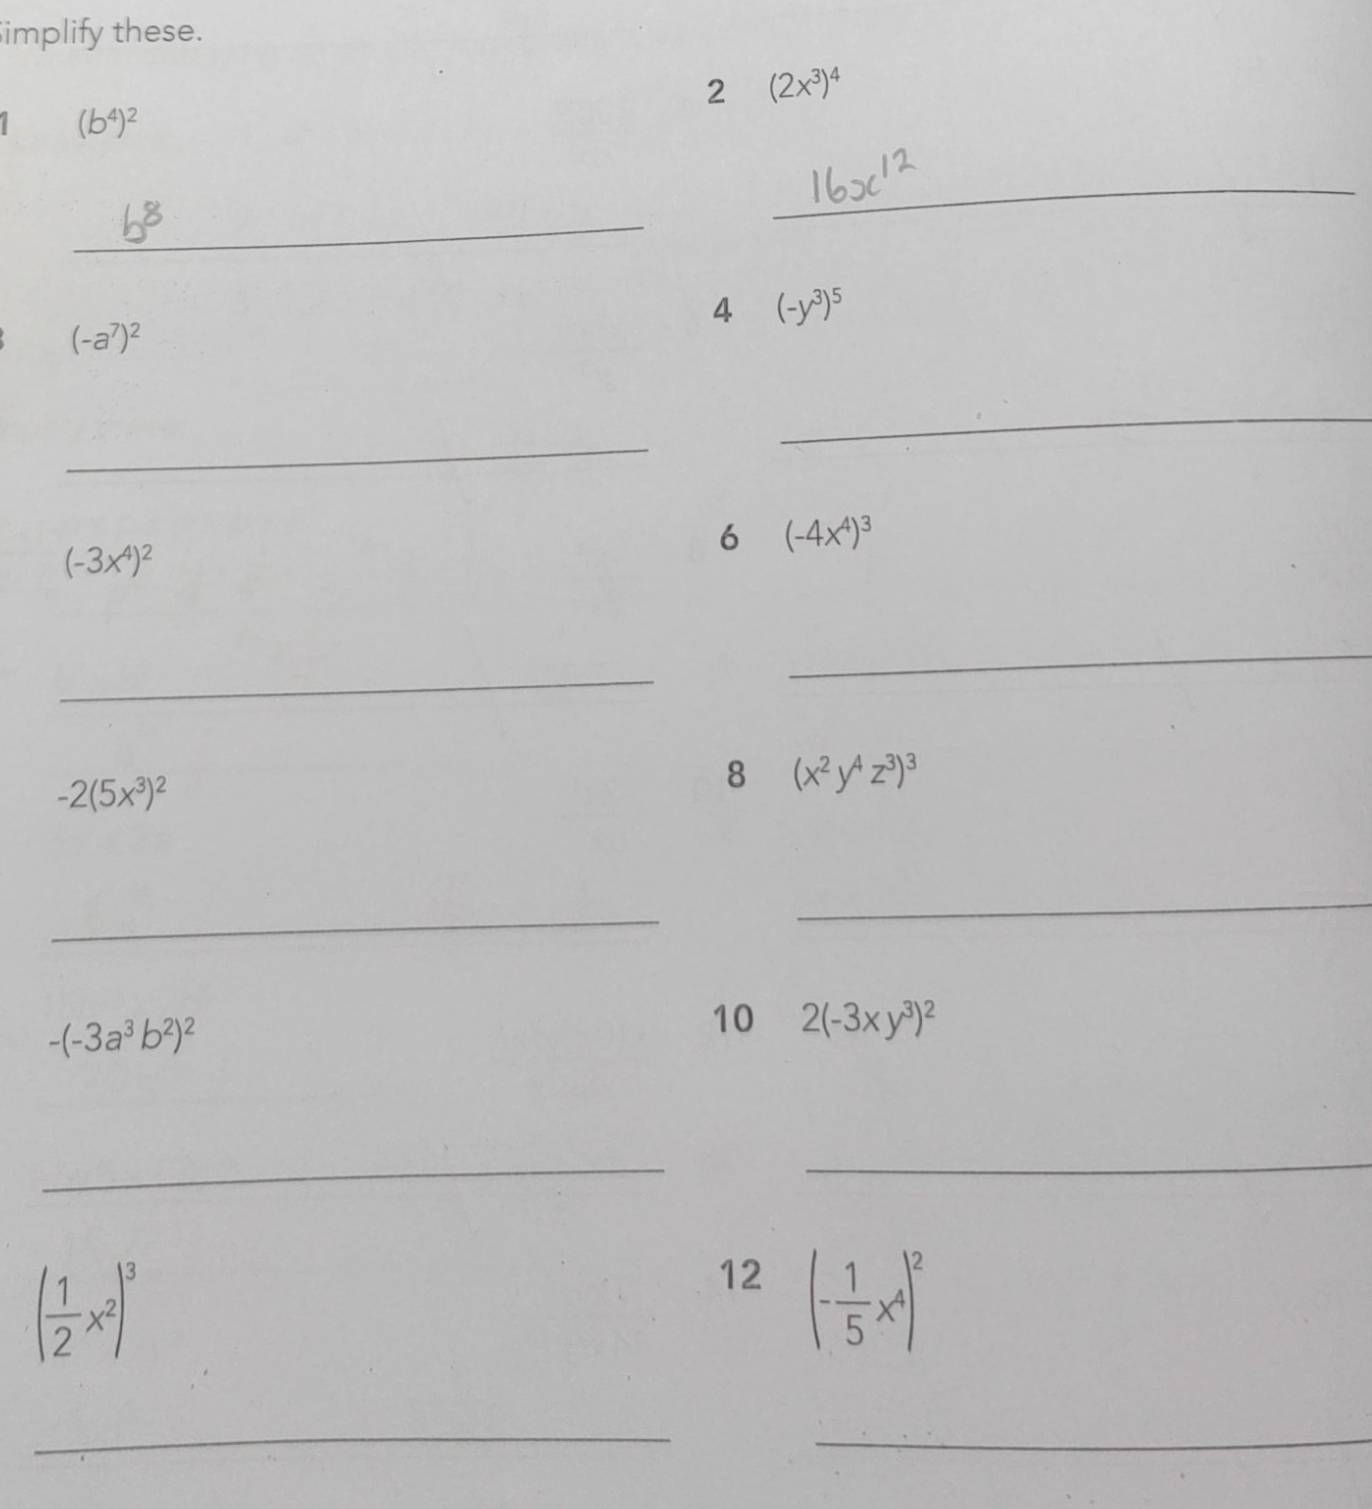 Simplify these.
1 (b⁴)²
2 (2x³)⁴
b⁸
16x¹²
3 (-a⁷)²
4 (-y³)⁵
(-3x⁴)²
6 (-4x⁴)³
-2(5x³)²
8 (x² y⁴ z³)³
-(-3a³ b²)²
10 2(-3x y³)²
(1/2 x²)³
12 (-1/5 x⁴)²